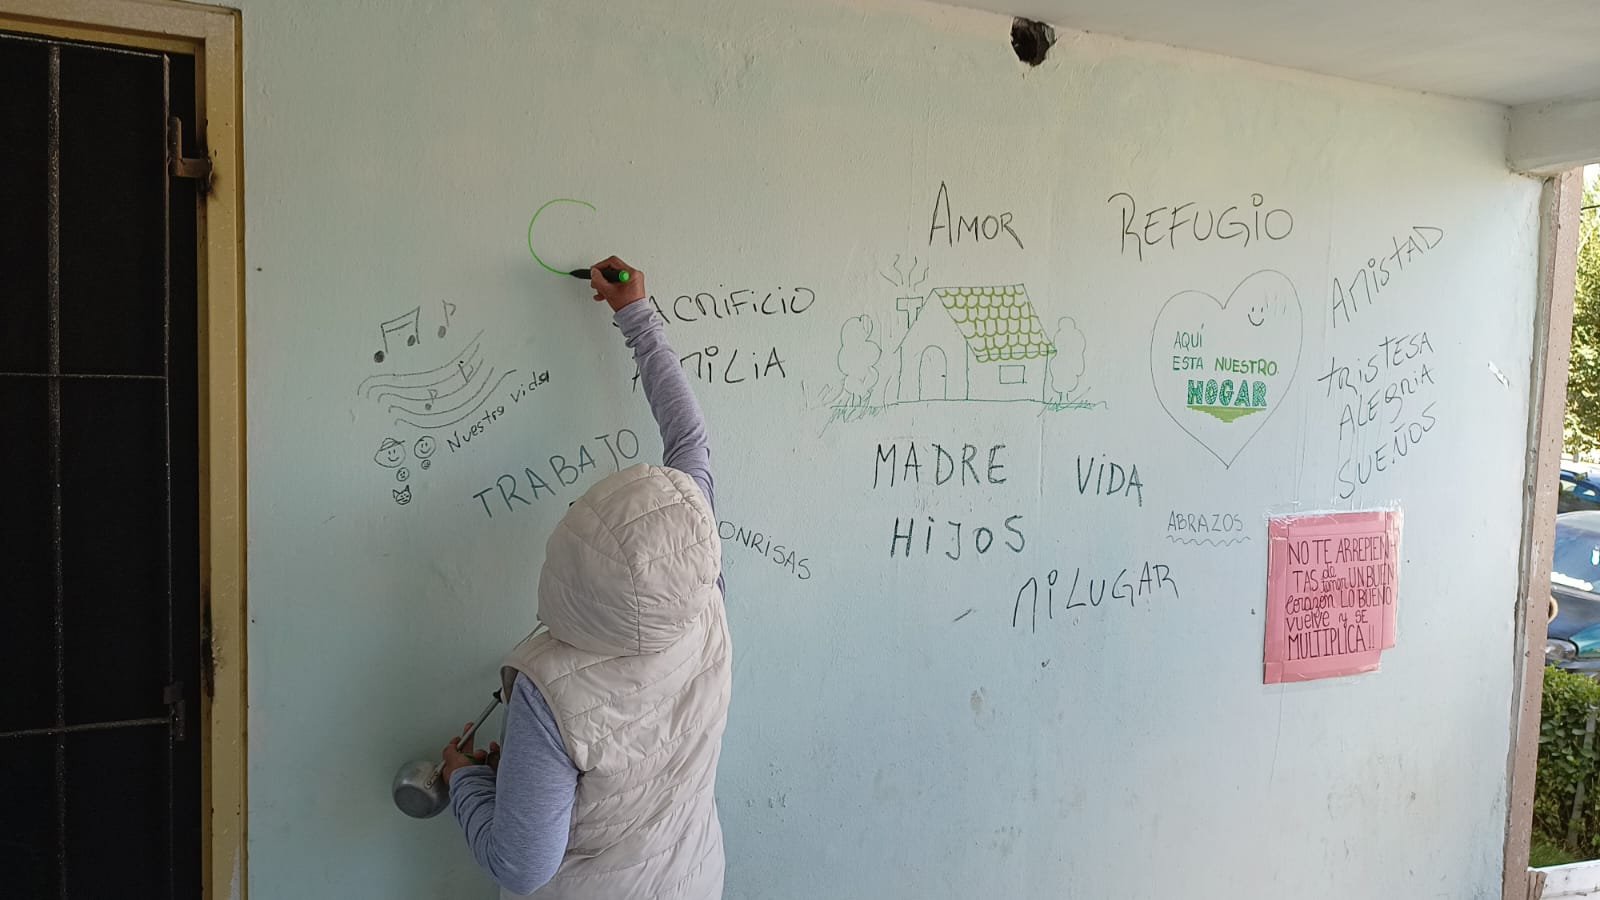 AMOR
REFUGIO
AMISTAD
ACRIFICIO
MILIA
AQUÍ
ESTA NUESTRO
HOGAR
TRISTESA
ALEGRIA
SUEÑOS
Nuestra vida
TRABAJO
MADRE
VIDA
HIJOS
ABRAZOS
ONRISAS
MI LUGAR
NO TE ARREPIEN
TAS de tener UN BUEN
corazón LO BUENO
vuelve y SE
MULTIPLICA!!